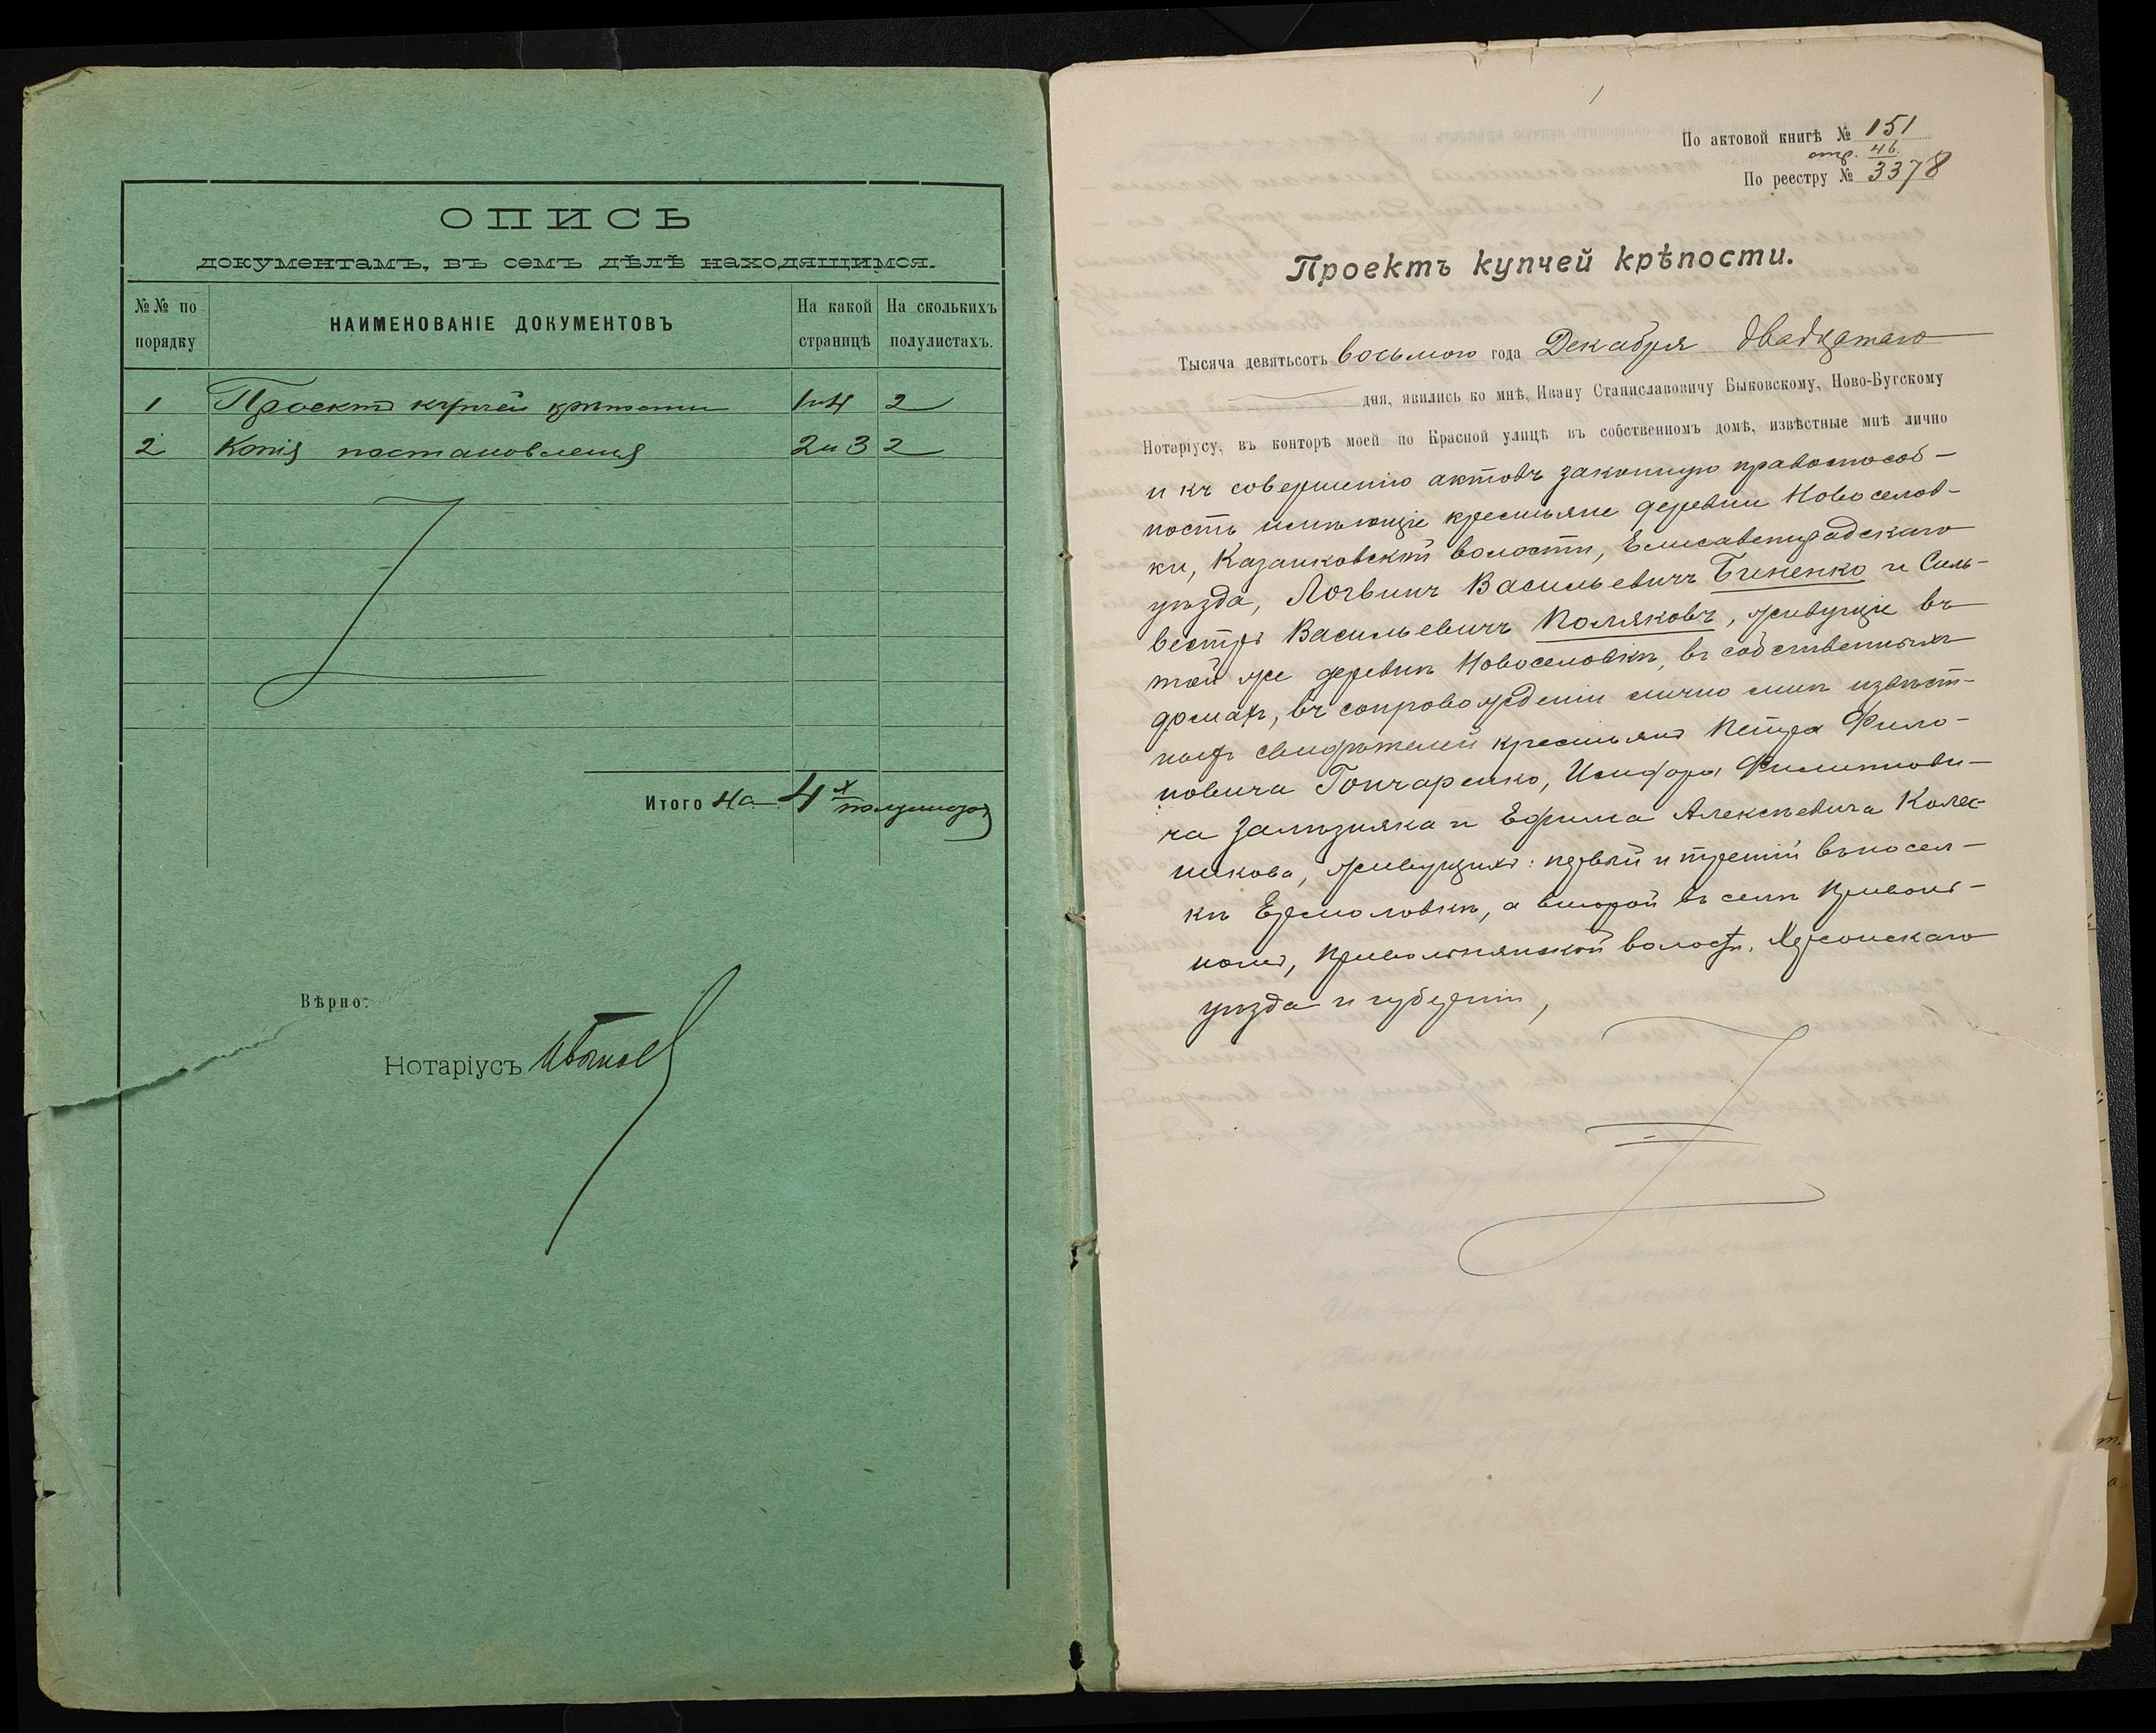 ОПИСЬ
документамъ, въ семъ дѣлѣ находящимся.
№№ по порядку
НАИМЕНОВАНІЕ ДОКУМЕНТОВЪ
На какой страницѣ
На сколькихъ полулистахъ.
1 Проектъ купчей крѣпости 1и4 2
2 Копія постановленія 2и3 2
Итого на 4х полулистахъ
Вѣрно:
Нотаріусъ
1
По актовой книгѣ № 151
стр. 46.
По реестру № 3378
Проектъ купчей крѣпости.
Тысяча девятьсотъ восьмого года Декабря двадцатаго
дня, явились ко мнѣ, Ивану Станиславовичу Быковскому, Ново-Бугскому
Нотаріусу, въ конторѣ моей по Красной улицѣ въ собственномъ домѣ, извѣстные мнѣ лично
и къ совершенію актовъ законную правоспособ-
ность имѣющіе крестьяне деревни Новоселов-
ки, Казанковской волости, Елисаветградскаго
уѣзда, Логвинъ Васильевичъ Биненко и Силь-
вестръ Васильевичъ Поляковъ, живущіе въ
той же деревнѣ Новоселовкѣ, въ собственныхъ
домахъ, въ сопровожденіи лично мнѣ извѣст-
ныхъ свидѣтелей крестьянъ Петра Фило-
новича Гончаренко, Исидора Филиппови-
ча Зализняка и Ефима Алексѣевича Колес-
никова, живущихъ: первый и третій въ посел-
кѣ Ермоловкѣ, а второй въ селѣ
волости, Херсонскаго
уѣзда и губерніи,